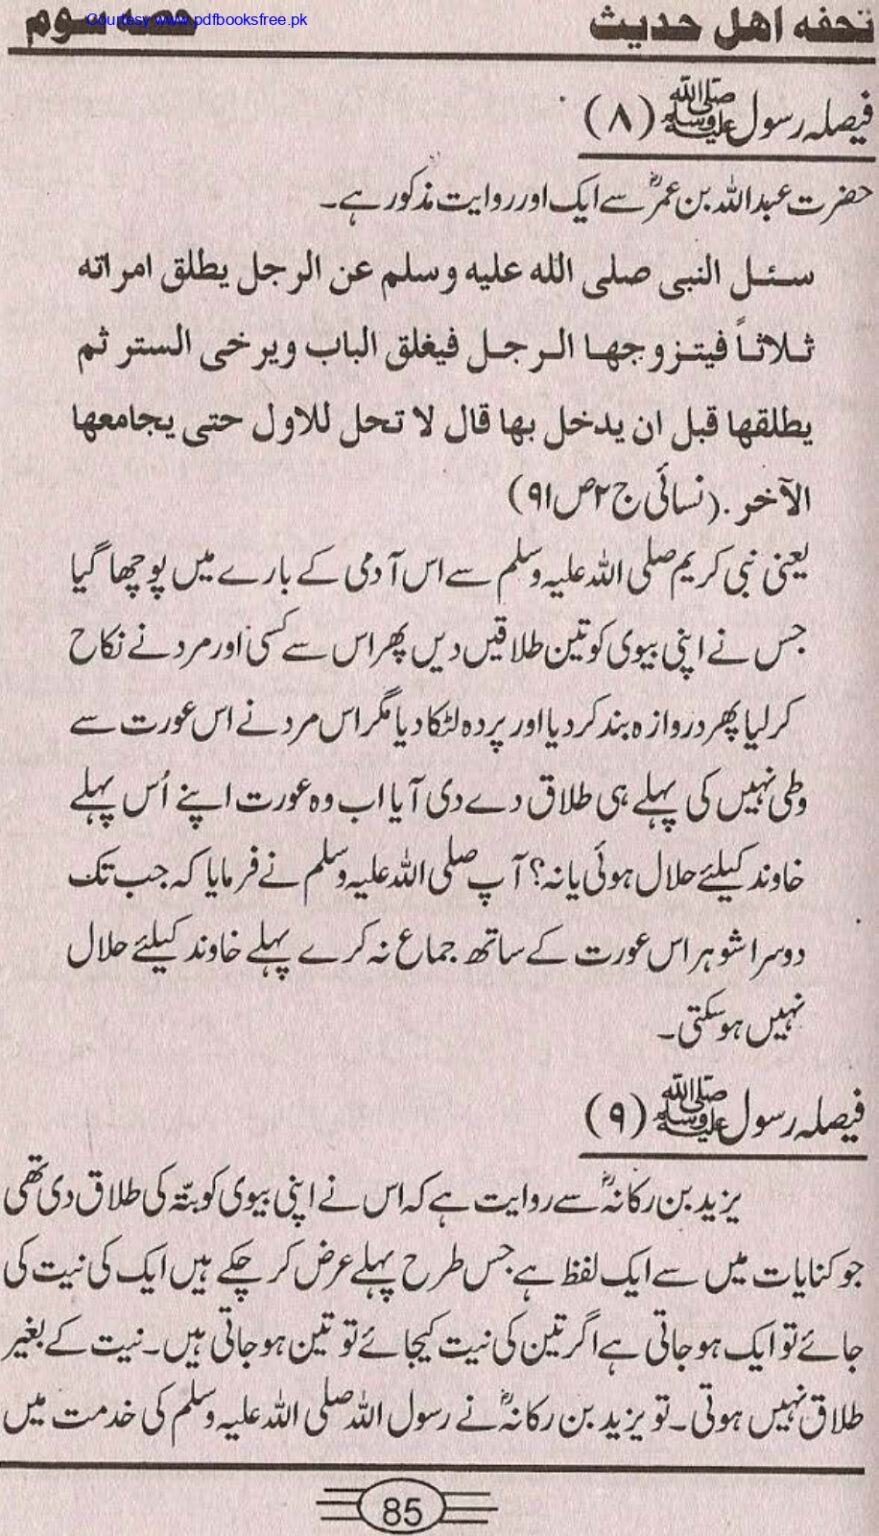 تحفہ اھل حدیث
حصہ سوم
Courtesy www.pdfbooksfree.pk
فیصلہ رسول ﷺ (۸)
حضرت عبداللہ بن عمرؓ سے ایک اور روایت مذکور ہے۔
سئل النبی صلی اللہ علیہ وسلم عن الرجل یطلق امراتہ
ثلاثاً فیتزوجھا الرجل فیغلق الباب ویرخی الستر ثم
یطلقھا قبل ان یدخل بھا قال لا تحل للاول حتی یجامعھا
الآخر .(نسائی ج۲ص۹۱)
یعنی نبی کریم صلی اللہ علیہ وسلم سے اس آدمی کے بارے میں پوچھا گیا
جس نے اپنی بیوی کو تین طلاقیں دیں پھر اس سے کسی اور مرد نے نکاح
کر لیا پھر دروازہ بند کر دیا اور پردہ لٹکا دیا مگر اس مرد نے اس عورت سے
وطی نہیں کی پہلے ہی طلاق دے دی آیا اب وہ عورت اپنے اُس پہلے
خاوند کیلئے حلال ہوئی یا نہ؟ آپ صلی اللہ علیہ وسلم نے فرمایا کہ جب تک
دوسرا شوہر اس عورت کے ساتھ جماع نہ کرے پہلے خاوند کیلئے حلال
نہیں ہو سکتی۔
فیصلہ رسول ﷺ (۹)
یزید بن رکانہؓ سے روایت ہے کہ اس نے اپنی بیوی کو بتّہ کی طلاق دی تھی
جو کنایات میں سے ایک لفظ ہے جس طرح پہلے عرض کر چکے ہیں ایک کی نیت کی
جائے تو ایک ہو جاتی ہے اگر تین کی نیت کیجائے تو تین ہو جاتی ہیں۔ نیت کے بغیر
طلاق نہیں ہوتی۔ تو یزید بن رکانہؓ نے رسول اللہ صلی اللہ علیہ وسلم کی خدمت میں
85